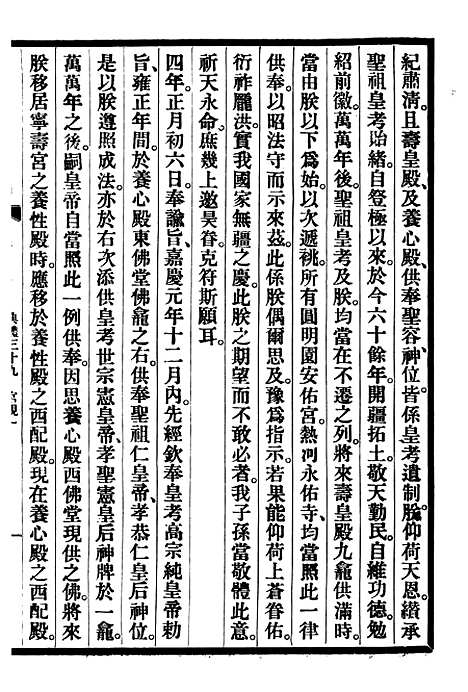 紀肅清。且壽皇殿、及養心殿、供奉聖容神位。皆係皇考遺制。朕仰荷天恩。纘承
聖祖皇考貽緒。自登極以來。於今六十餘年。開疆拓土。敬天勤民。自維功德。勉
紹前徽。萬萬年後。聖祖皇考及朕。均當在不遷之列。將來壽皇殿九龕供滿時。
當由朕以下為始。以次遞祧。所有圓明園安佑宮。熱河永佑寺。均當照此一律
供奉。以昭法守而示來茲。此係朕偶爾思及。豫為指示。若果能仰荷上蒼眷佑。
衍祚龐洪。實我國家無疆之慶。此朕之期望而不敢必者。我子孫當敬體此意。
祈天永命。庶幾上邀昊眷。克符斯願耳。
四年。正月初六日奉諭旨。嘉慶元年十二月內。先經欽奉皇考高宗純皇帝敕
旨。雍正年間。於養心殿東佛堂佛龕之右。供奉聖祖仁皇帝、孝恭仁皇后神位。
是以朕遵照成法。亦於右次添供皇考世宗憲皇帝、孝聖憲皇后神牌於一龕。
萬萬年之後。嗣皇帝自當照此一例供奉。因思養心殿西佛堂現供之佛。將來
朕移居寧壽宮之養性殿時。應移於養性殿之西配殿。現在養心殿之西配殿。